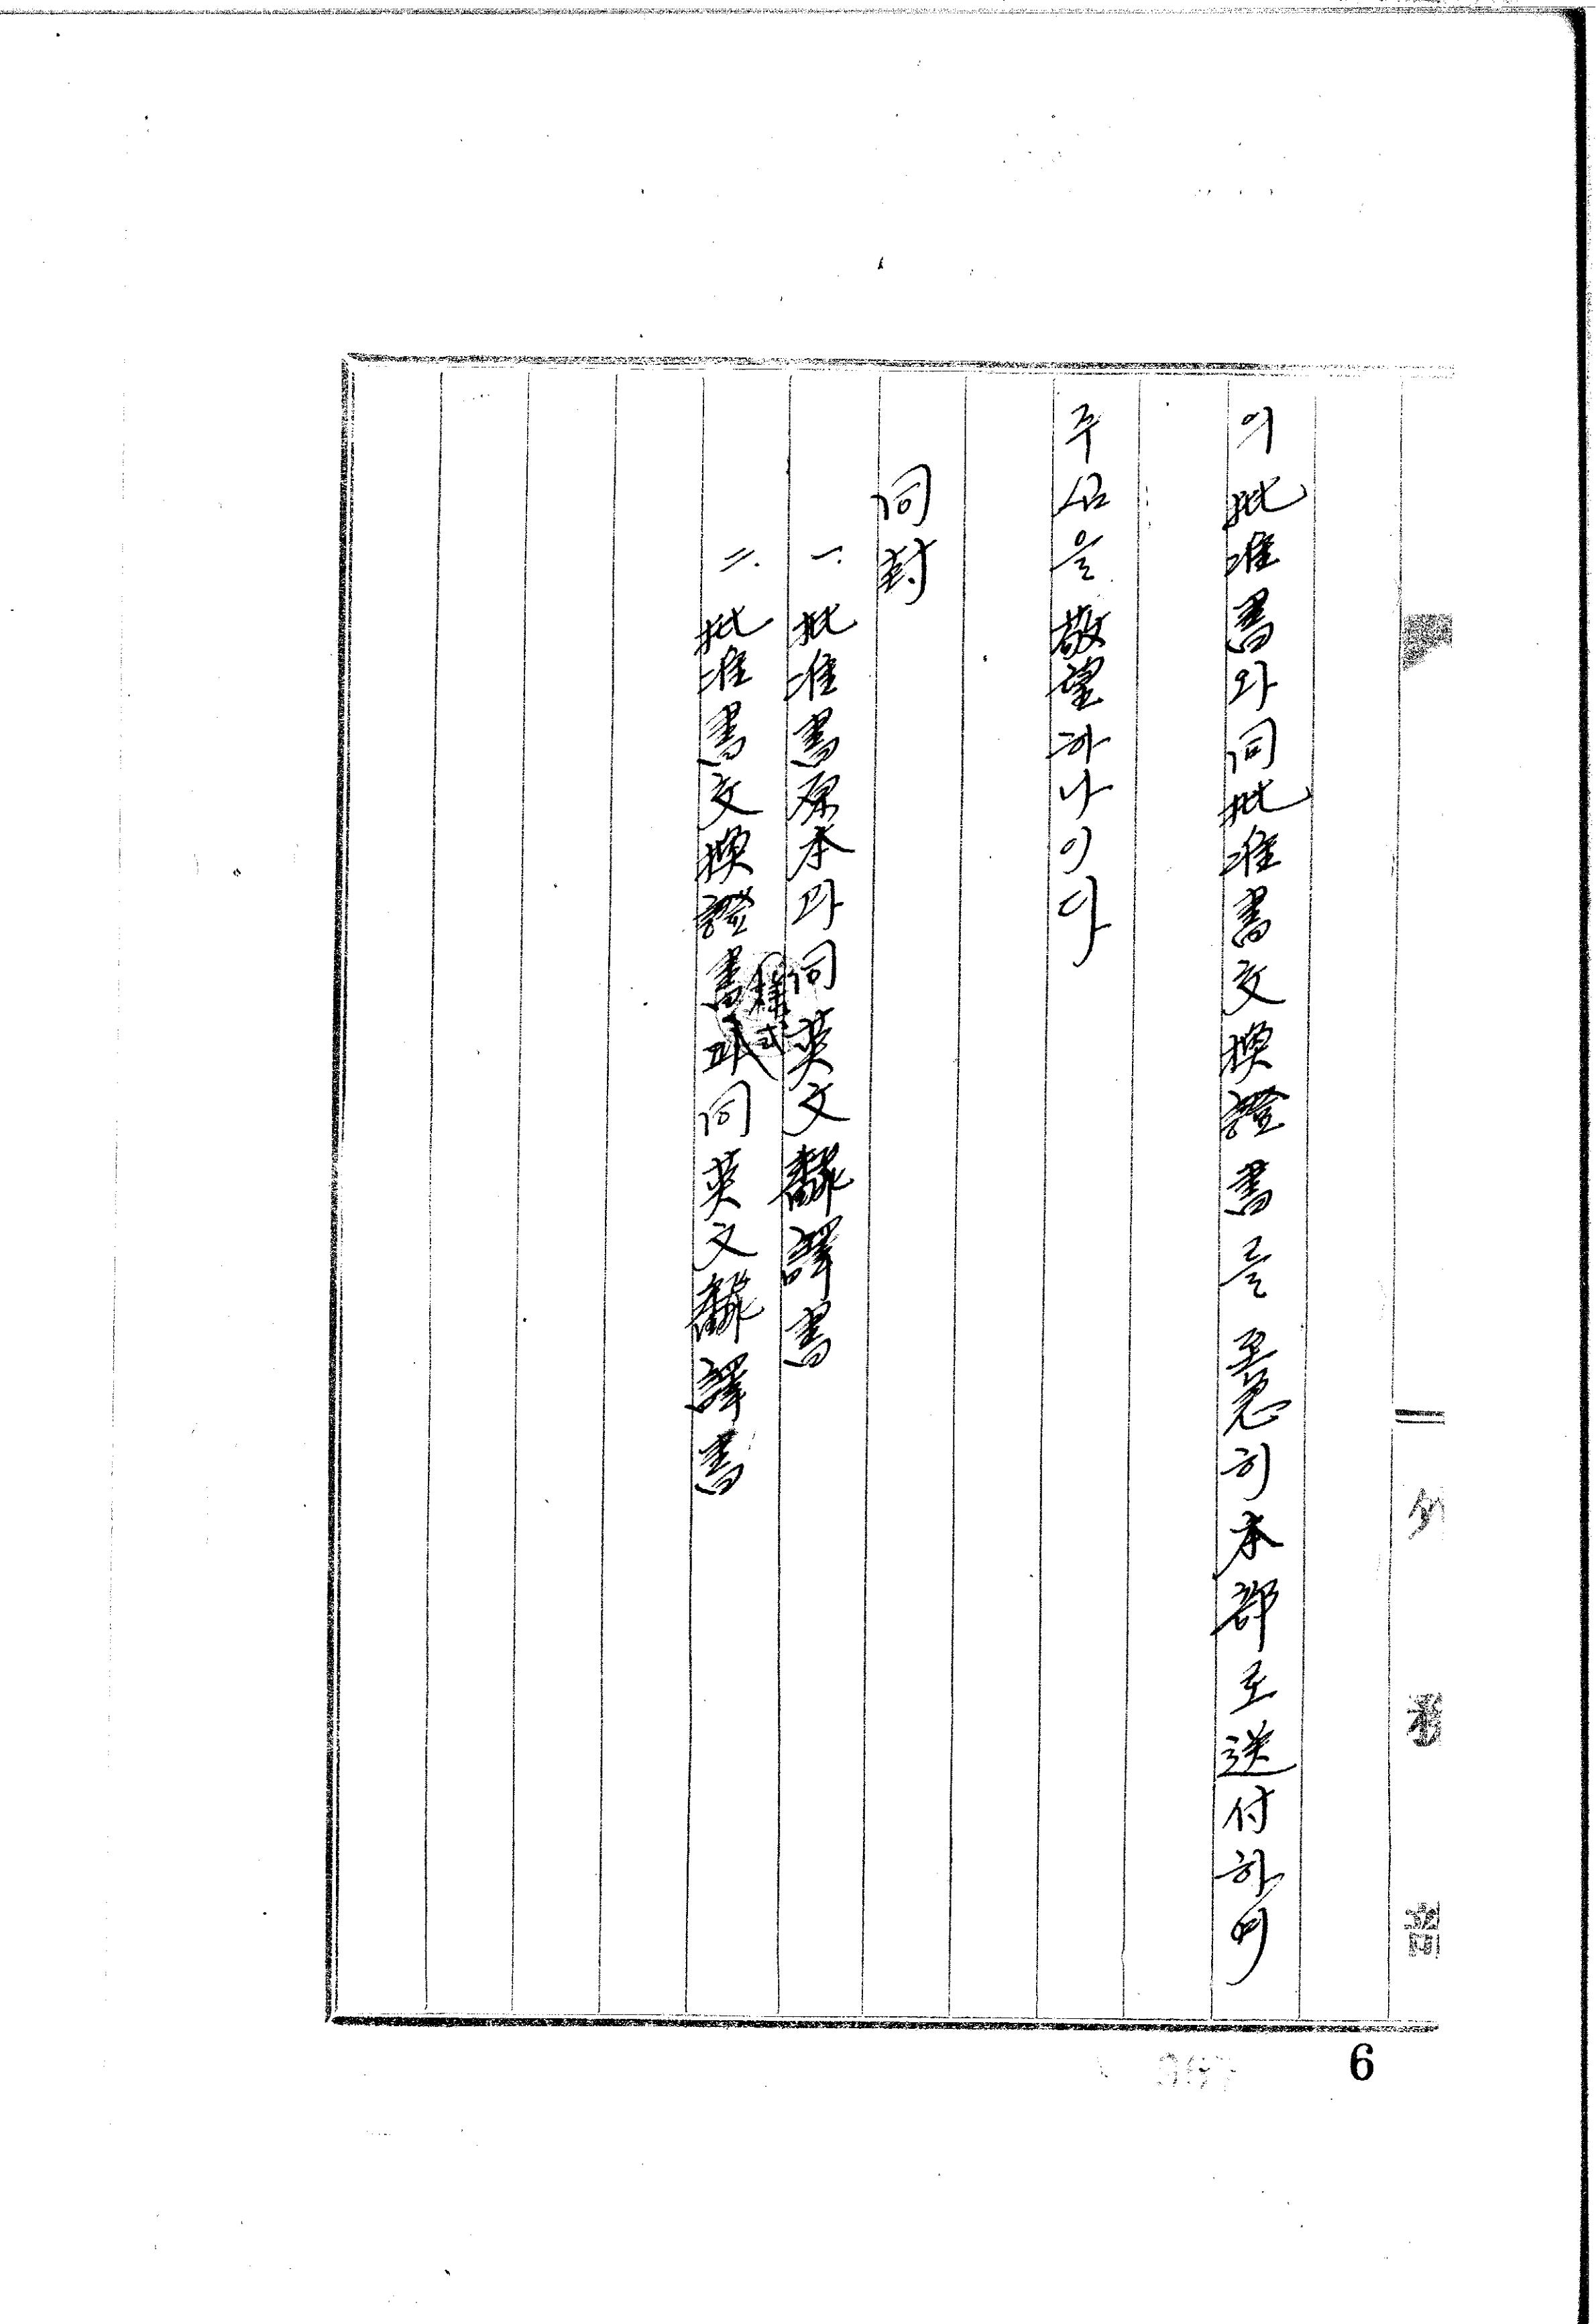 의批准書와同批准書交換證書를至急히本部로送付하여
주심을敬望하나이다
同封
一. 批准書原本과同英文飜譯書
二. 批准書交換證書樣式과同英文飜譯書
外務部
6